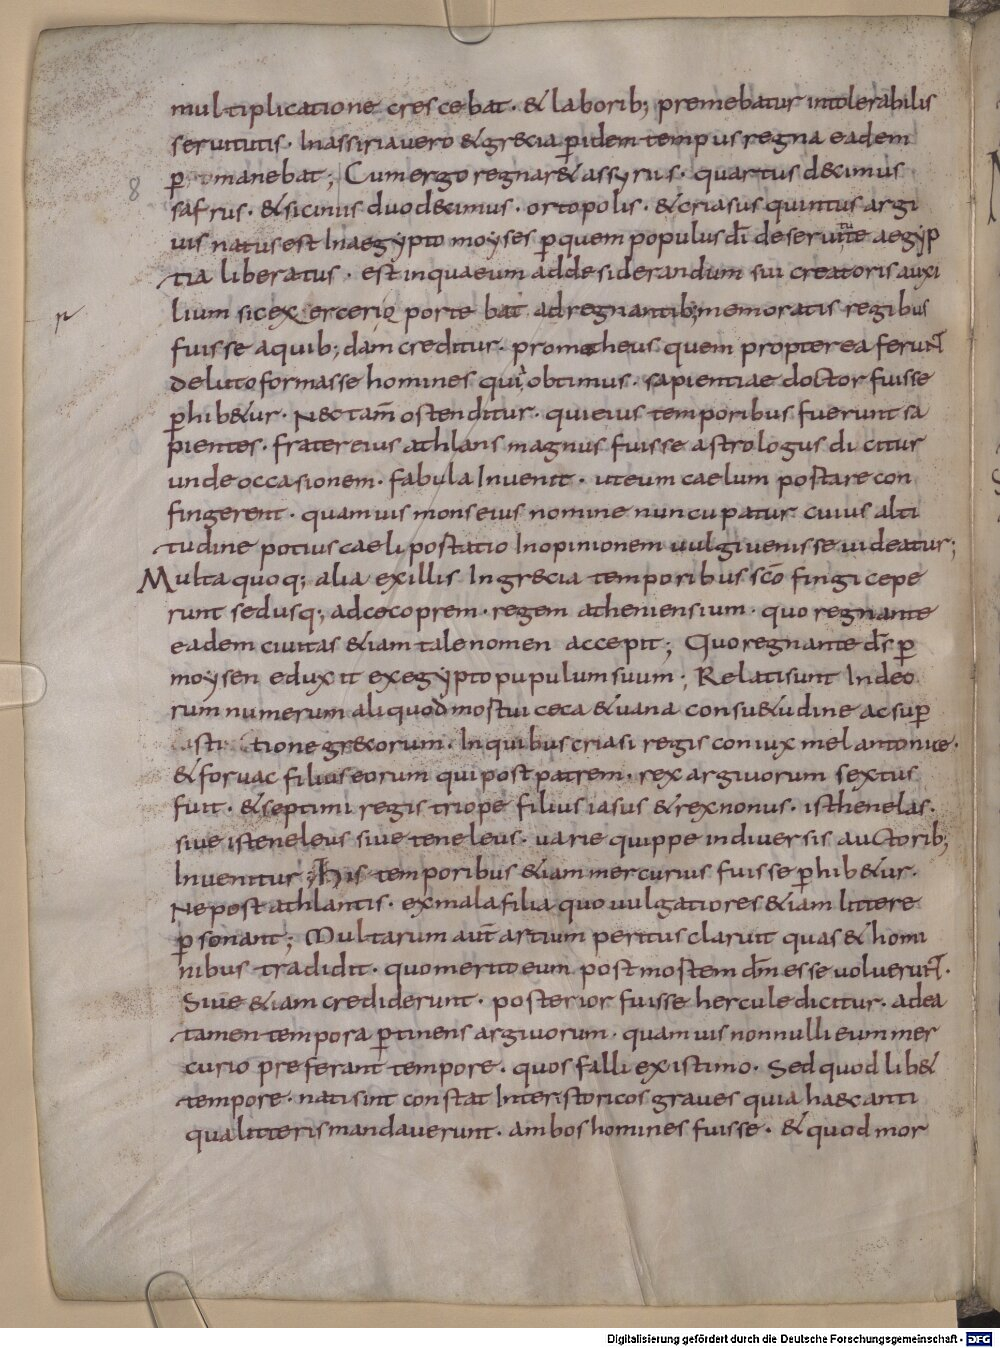 multiplicatione crescebat · & laborib; premebatur intolerabilis
seruitutis · Inassiria vero & gr&cia p̱idem tempus regna eadem
p̱ manebat; Cum ergo regnar& assyriis · quartus decimus
8
safrus · & siciniis duodecimus · ortopolis · & criasus quintus argi
uis natus est Inaegypto moyses p̱quem populus dī de seruitute aegyp
tia liberatus · est inquaeum ad desiderandum sui creatoris auxi
lium sic exerceri oportebat ad regnantib; memoratis regibus
fuisse aquib; dam creditur · prometheus quem propterea ferunt
de luto formasse homines qui obtimus · sapientiae doctor fuisse
p̱hib&ur · Nec tam̄ ostenditur · qui eius temporibus fuerunt sa
pientes · frater eius athlans magnus fuisse astrologus dicitur
unde occasionem · fabula Inuenit · ut eum caelum postare con
fingerent · quam uis mons eius nomine nuncupatur cuius alti
tudine potius caeli postatio Inopinionem uulgi uenisse uideatur;
Multa quoq; alia exillis Ingrecia temporibus scō fingi cepe
runt sed usq; ad cocoprem · regem atheniensium · quo regnante
eadem ciuitas &iam tale nomen accepit; Quo regnante d̄s p̱
moysen eduxit exegypto pupulum suum; Relati sunt Indeo
rum numerum aliquod mostui ceca & uana consu&udine ac sup̱
tione grecorum · Inquibus criasi regis coniux melantonice ·
& foruac filius eorum qui post patrem · rex argiuorum sextus
fuit · & septimi regis triope filius iasus & rex nonus · isthenelas ·
siue isteneleus siue teneleus · varie quippe indiuersis auctorib;
Inuenitur; His temporibus &iam mercurius fuisse p̱hib&ur ·
Ne post athlantis · exmala filia quo uulgatiores &iam littere
p̱sonant; Multarum aut̄ artium peritus claruit quas & homi
nibus tradidit · quo merito eum post mostem dm̄ esse uoluerunt ·
Siue &iam crediderunt · posterior fuisse hercule dicitur · ad ea
tamen tempora p̱tinens argiuorum · quam uis nonnulli eum mer
curio preferant tempore · quos falli existimo · Sed quod lib&
tempore · nati sint constat Inter istoricos graues quia haec anti
qua litteris mandauerunt · ambos homines fuisse · & quod mor
Digitalisierung gefördert durch die Deutsche Forschungsgemeinschaft · DFG